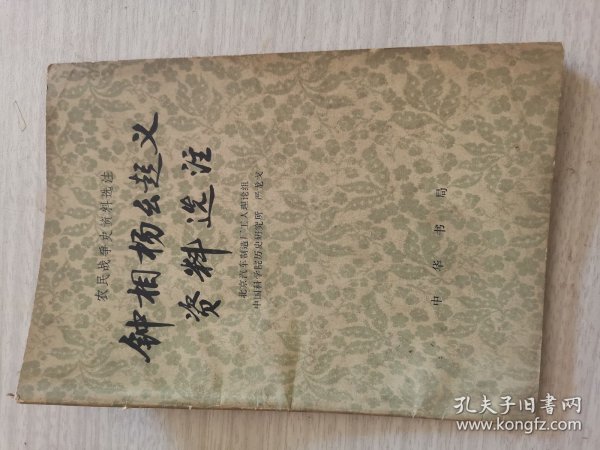 农民战争史资料选注
钟相杨幺起义
资料选注
北京汽车制造厂工人理论组
中国科学院历史研究所 严龙文
中华书局
孔夫子旧書网
www.kongfz.com